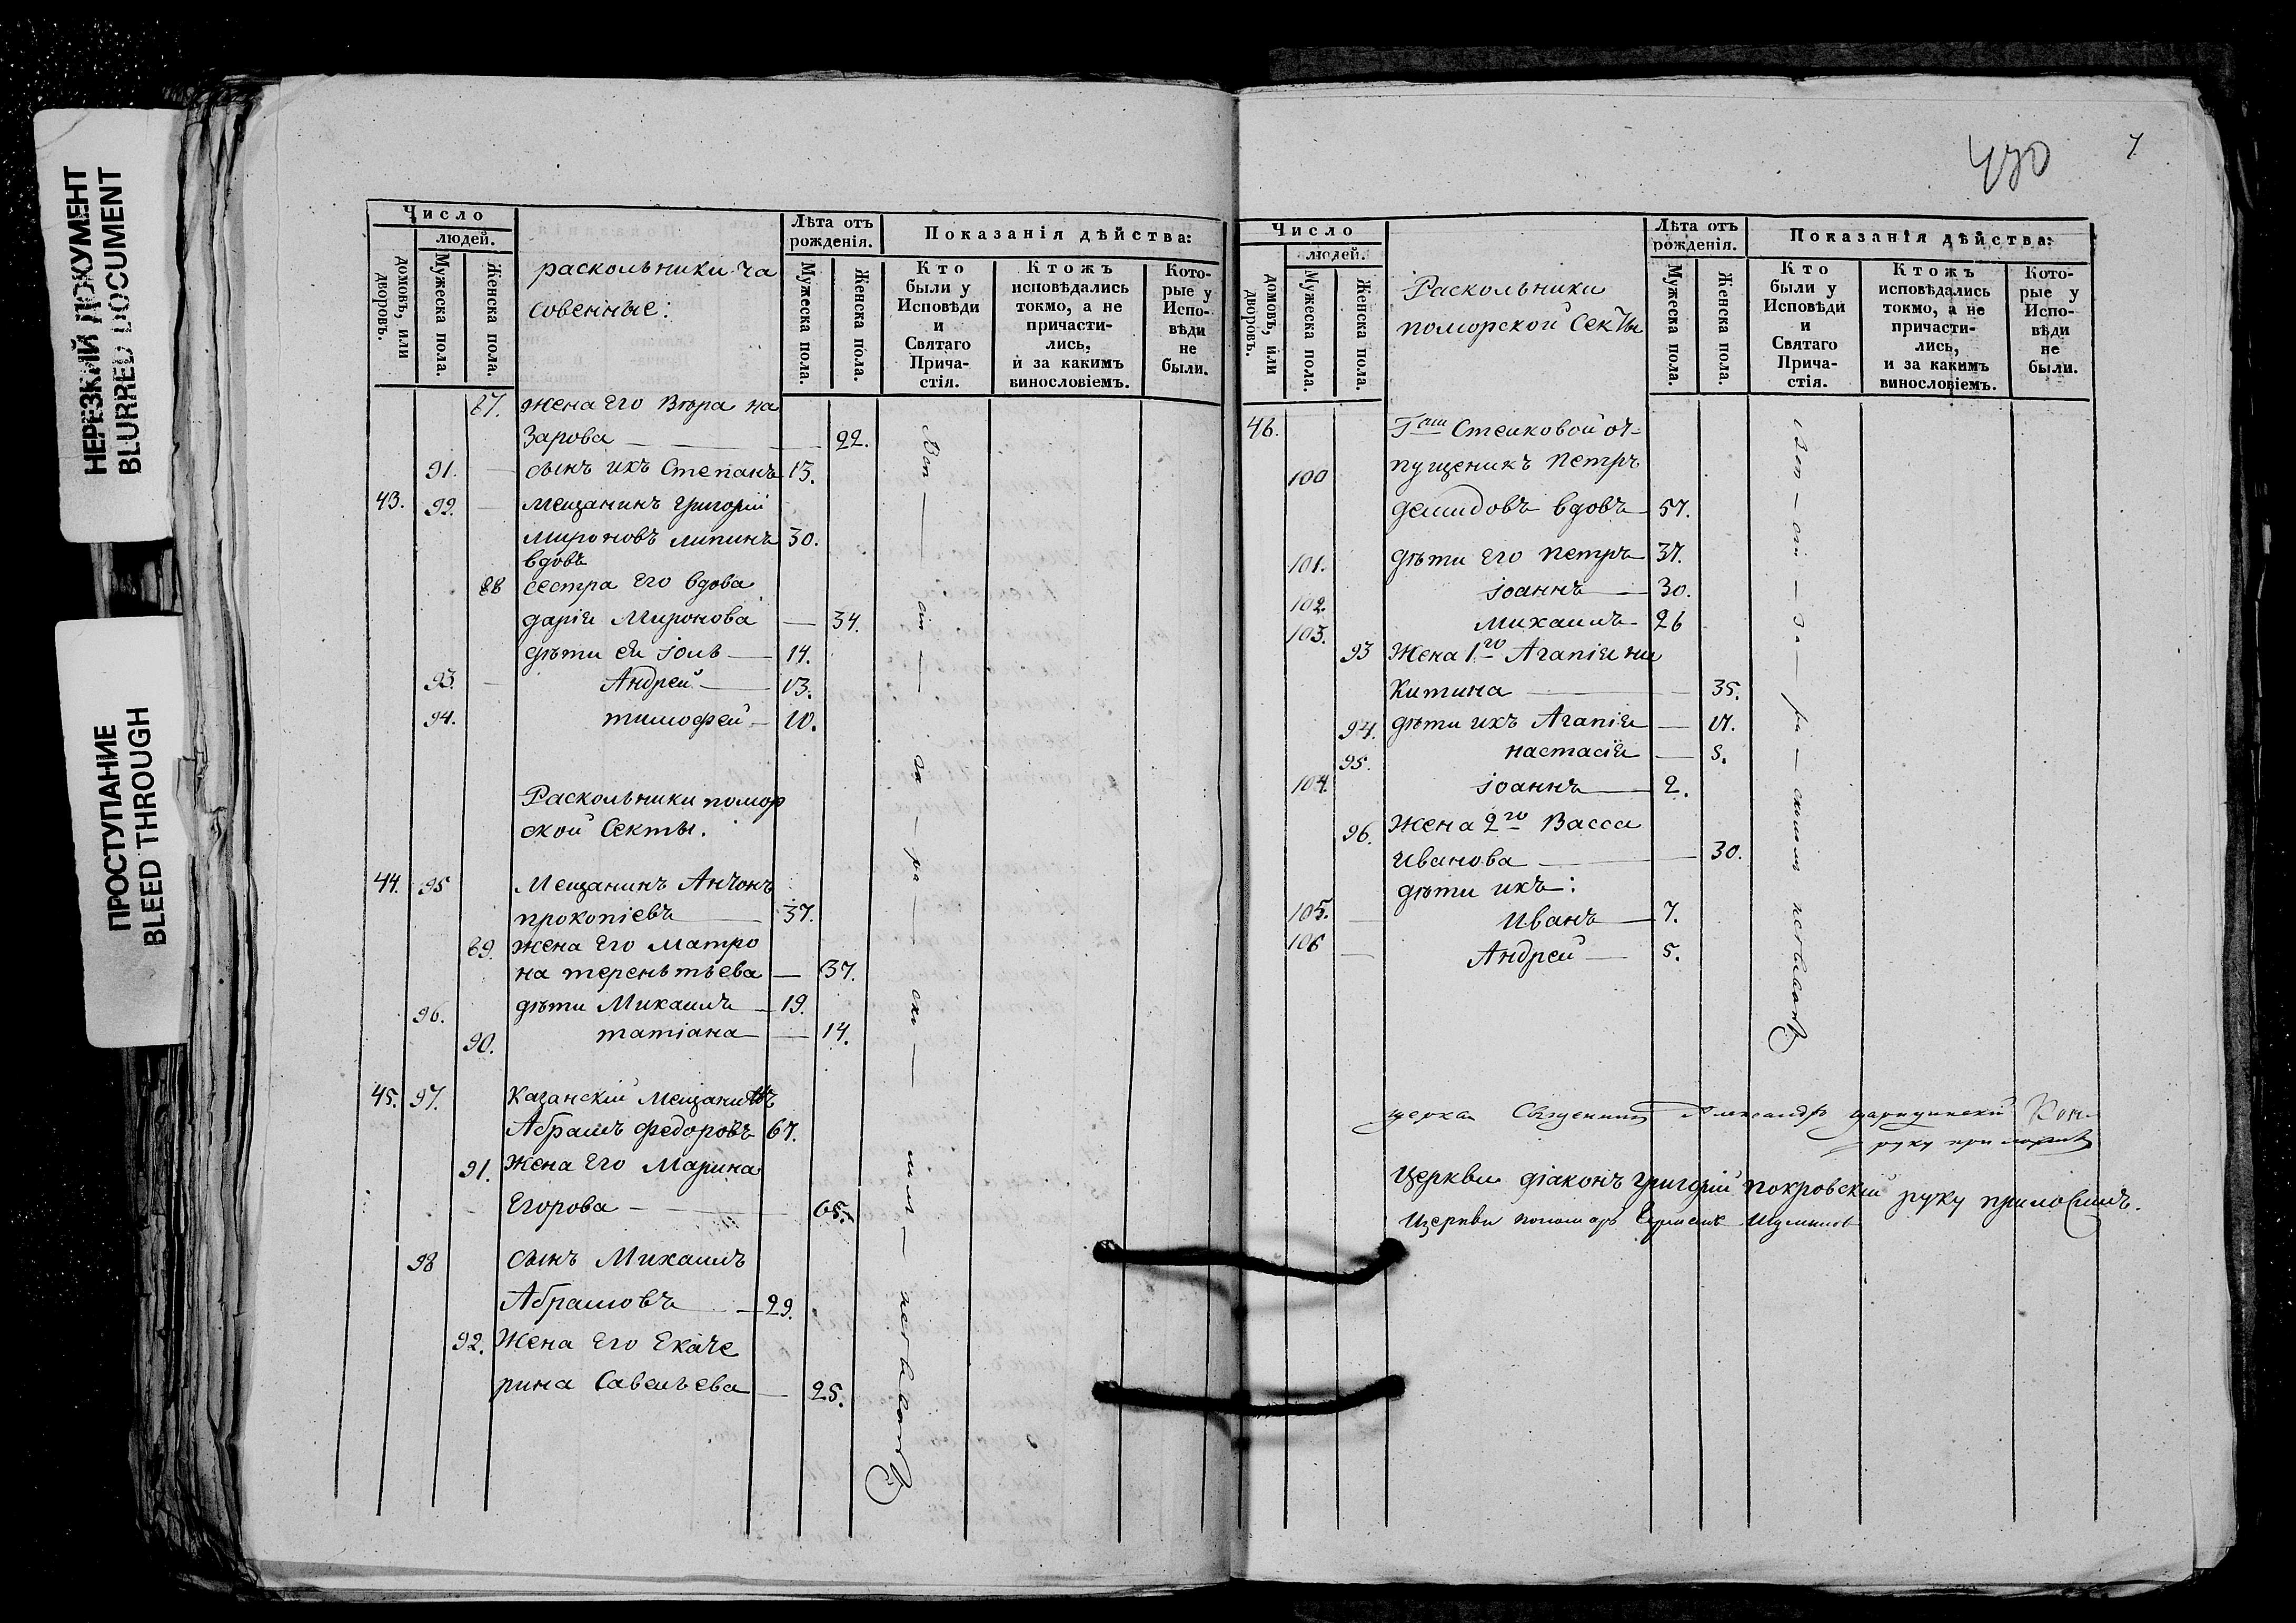 НЕРЕЗКИЙ ДОКУМЕНТ
BLURRED DOCUMENT
ПРОСТУПАНИЕ
BLEED THROUGH
Число
людей.
домовъ, или дворовъ.
Мужеска пола.
Женска пола.
раскольники ча
совенные:
Лѣта отъ рожденія.
Мужеска пола.
Женска пола.
Показанія дѣйства:
Кто были у Исповѣди и Святаго Прича-стія.
Ктожъ исповѣдались токмо, а не причасти-лись, и за какимъ винословіемъ.
Кото-рые у Испо-вѣди не были.
87. жена Его Вѣра на
Зарова — 22.
91. сынъ ихъ Степанъ 13.
43. 92. Мещанинъ Григорій
Мироновъ Липинъ 30.
вдовъ
88 сестра Его вдова
дарія Миронова — 34.
дѣти Ея 14.
93. Андрей — 13.
94. тимофей — 10.
Раскольники помор
ской Секты.
44. 95 Мещанинъ Антонъ
прокопіевъ 37.
89. жена Его Матро
на терентьева — 37.
96. дѣти Михаилъ — 19.
90. татіана — 14.
45. 97. Казанскій Мещанинъ
Абрамъ Федоровъ 67.
91. Жена Его Марина
Егорова — 65.
98 сынъ Михаилъ
Абрамовъ — 29.
92. Жена Его Екате
рина Савельева — 25.
430
7
Число
людей.
домовъ, или дворовъ.
Мужеска пола.
Женска пола.
Раскольники
поморской Секты
Лѣта отъ рожденія.
Мужеска пола.
Женска пола.
Показанія дѣйства:
Кто были у Исповѣди и Святаго Прича-стія.
Ктожъ исповѣдались токмо, а не причасти-лись, и за какимъ винословіемъ.
Кото-рые у Испо-вѣди не были.
46. Г Стенковой от=
100 пущеникъ Петръ
демидовъ вдовъ 57.
101. дѣти Его Петръ 37.
102. Іоаннъ — 30.
103. Михаилъ — 26
93 Жена 1го Агапія ни
Китина — 35.
94. дѣти ихъ Агапія — 11.
95. настасія — 8.
104. Іоаннъ — 2.
96. Жена 2го Васса
Иванова — 30.
дѣти ихъ:
105. Иванъ — 7.
106 Андрей — 5.
Священникъ Александръ
руку
Церкви діаконъ Григорій Покровскій руку приложилъ.
Церкви пономарь